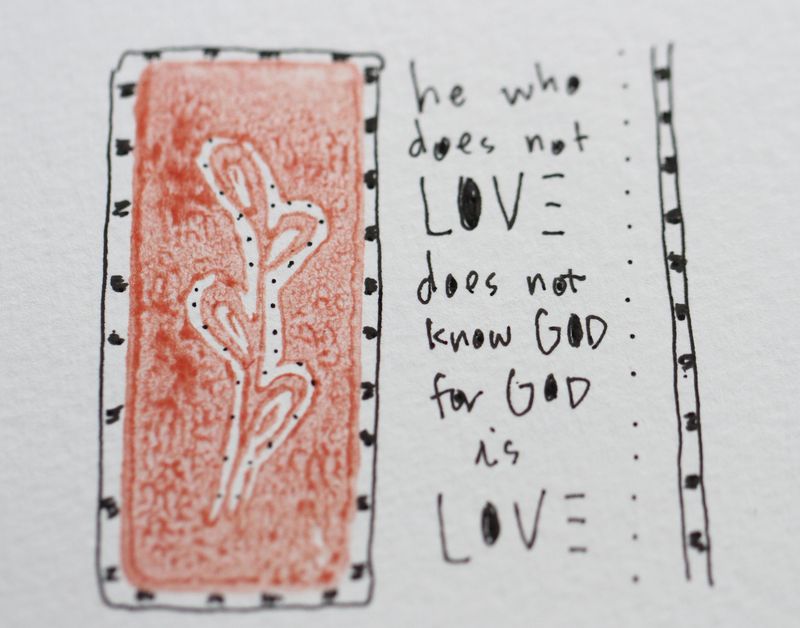 he who
does not
LOVE
does not
know GOD
for GOD
is
LOVE